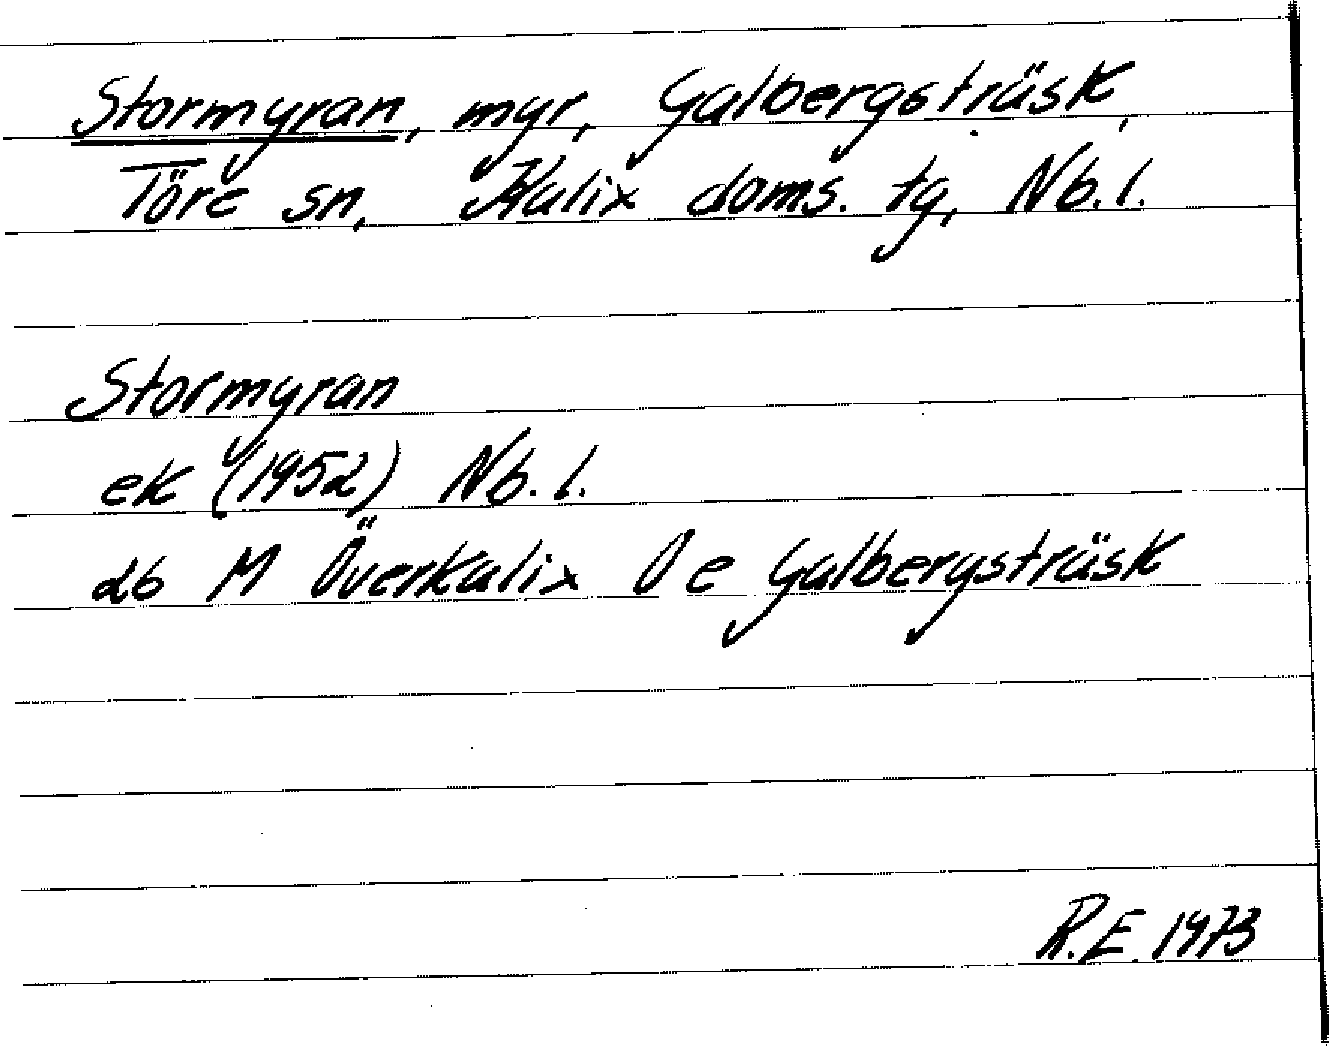 Stormyran, myr, Galbergsträsk,
Töre sn, Kalix doms. tg, Nb. l.
Stormyran
ek (1952) Nb. l.
db M Överkalix Ö e Galbergsträsk
R.E. 1973